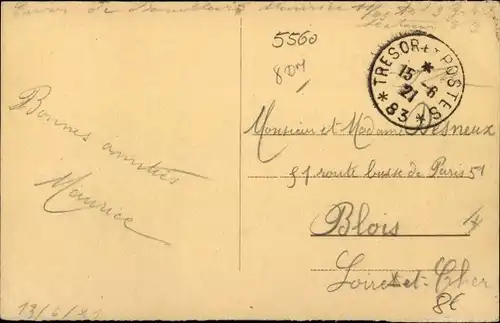 Maurice
5560
TRESOR ET POSTES
15 - 6
21
* 83 *
Bonnes amitiés
Maurice
Monsieur et Madame Desneux
51 route basse de Paris 51
Blois
Loir-et-Cher
13/6/21
8€